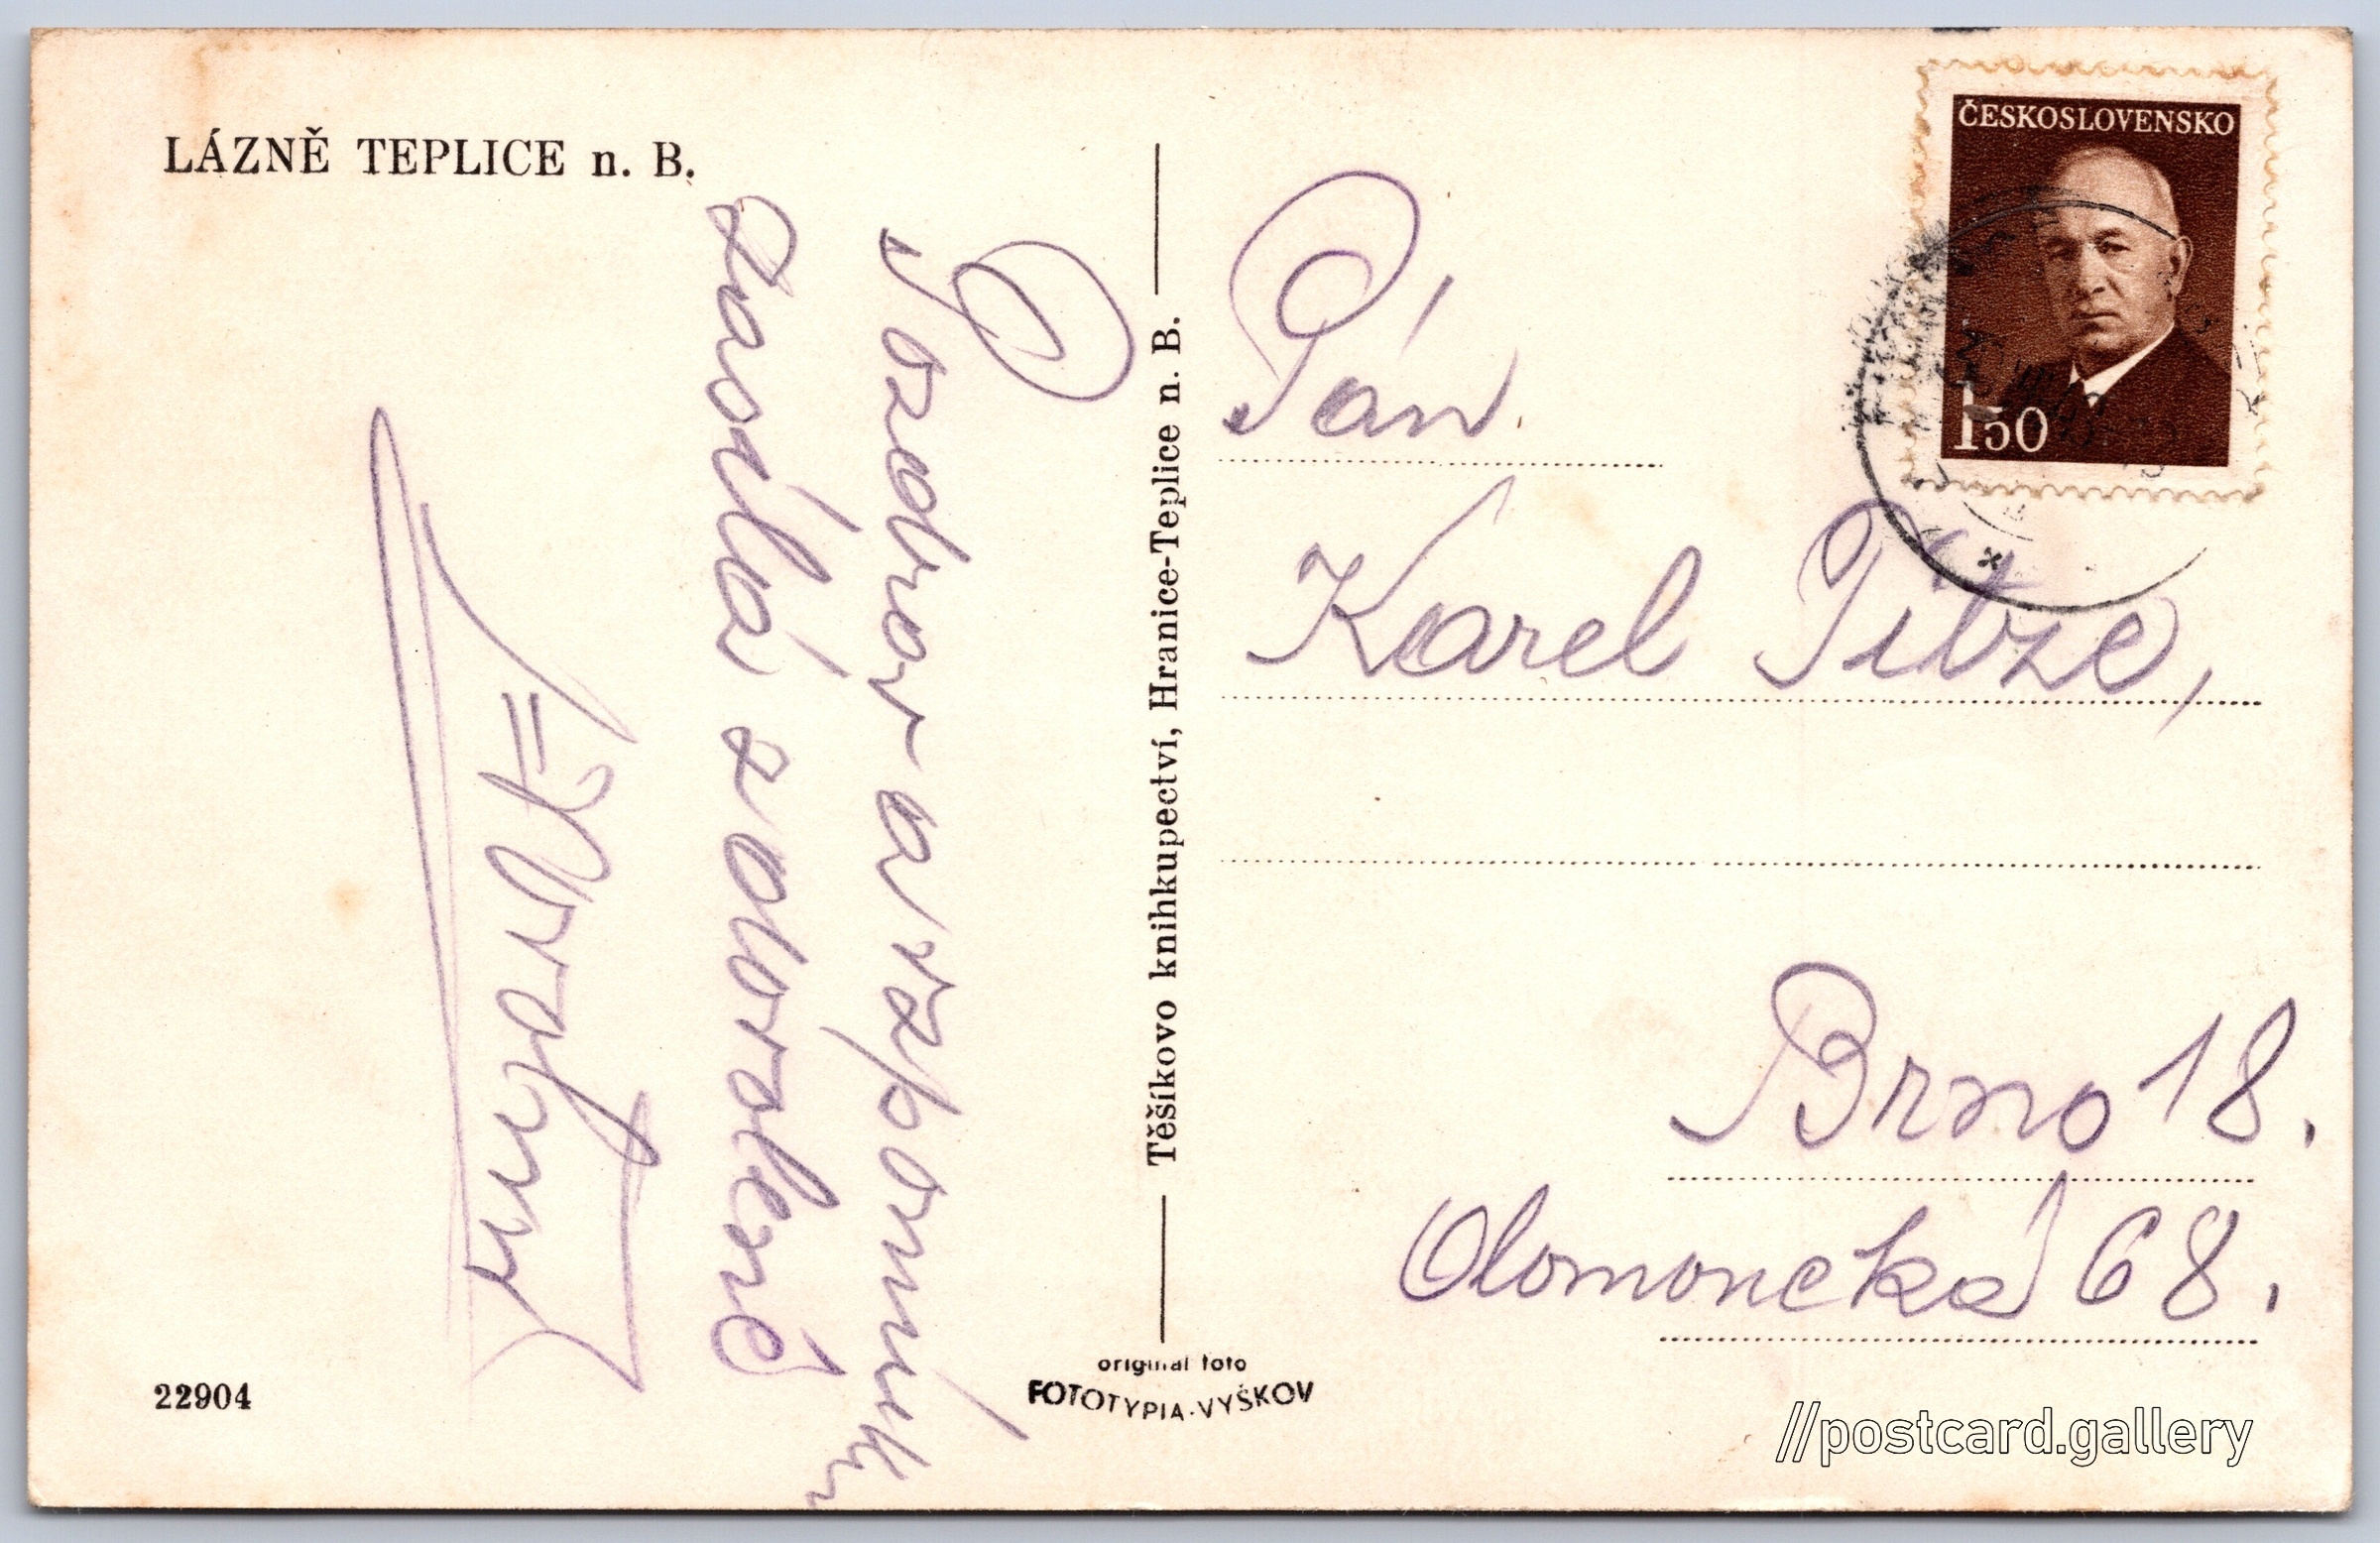 LÁZNĚ TEPLICE n. B.
Pozdrav a vzpomínku
zasílá z dovolené
22904
Těšíkovo knihkupectví, Hranice-Teplice n. B.
original foto
FOTOTYPIA-VYŠKOV
ČESKOSLOVENSKO
1 50
Pán
Karel Titze,
Brno 18.
Olomoucká 68.
//postcard.gallery